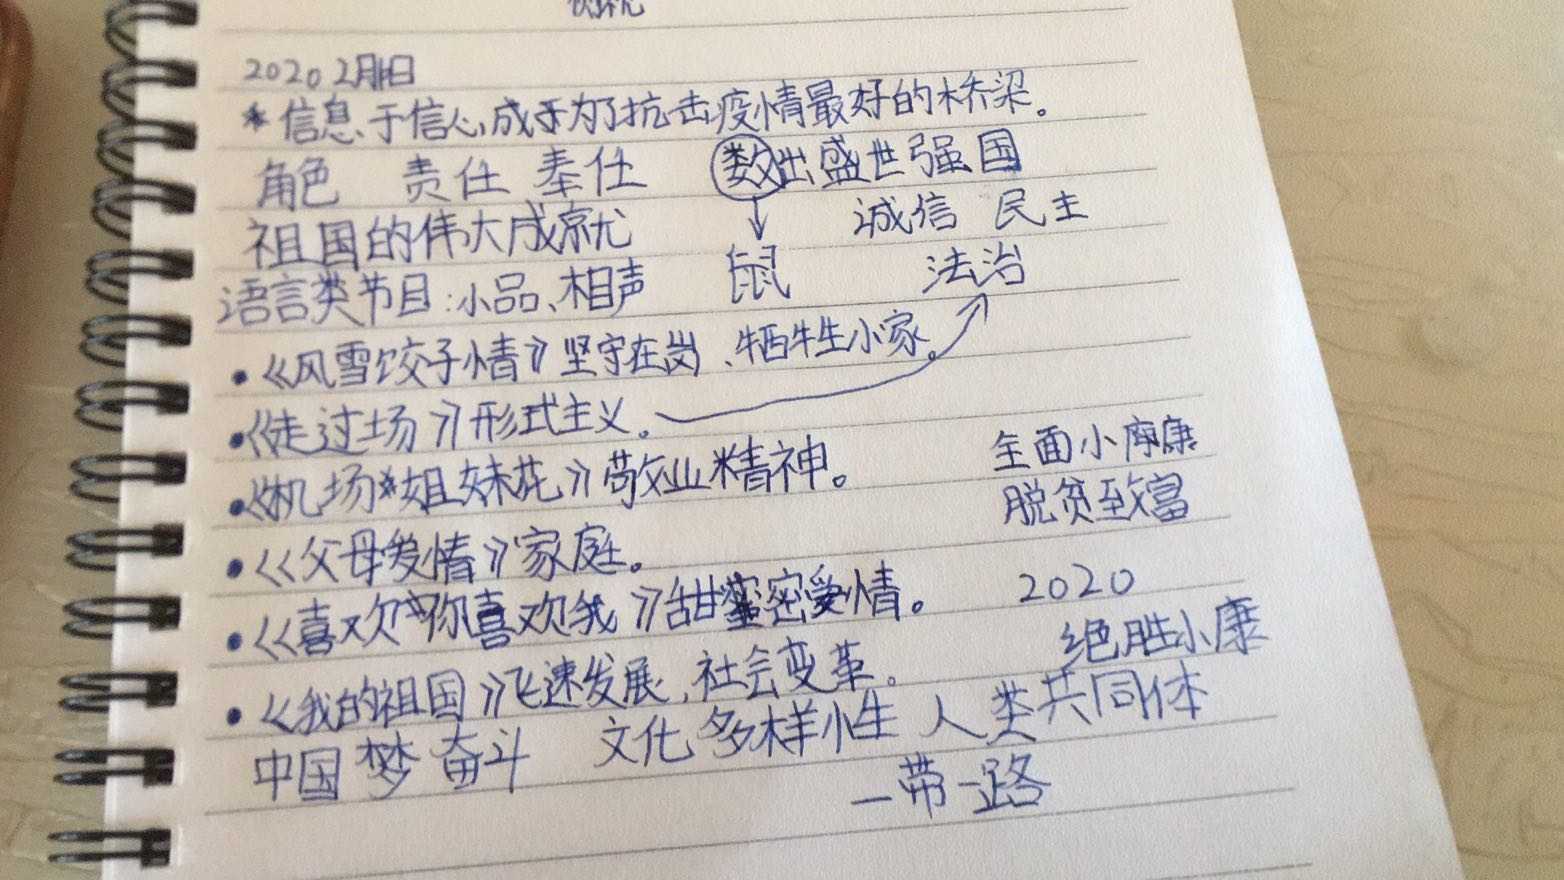 2020 2月1日
*信息于信心,成于为了抗击疫情最好的桥梁。
角色 责任 奉任 数出盛世强国
祖国的伟大成就 诚信 民主
语言类节目:小品、相声 鼠 法治
•《风雪饺子情》坚守在岗、牺牲小家。
•《走过场》形式主义。
•《机场姐妹花》敬业精神。 全面小康
脱贫致富
•《父母爱情》家庭。
•《喜欢你喜欢我》甜蜜密爱情。 2020
绝胜小康
•《我的祖国》飞速发展,社会变革。
中国梦 奋斗 文化多样性 人类共同体
一带一路